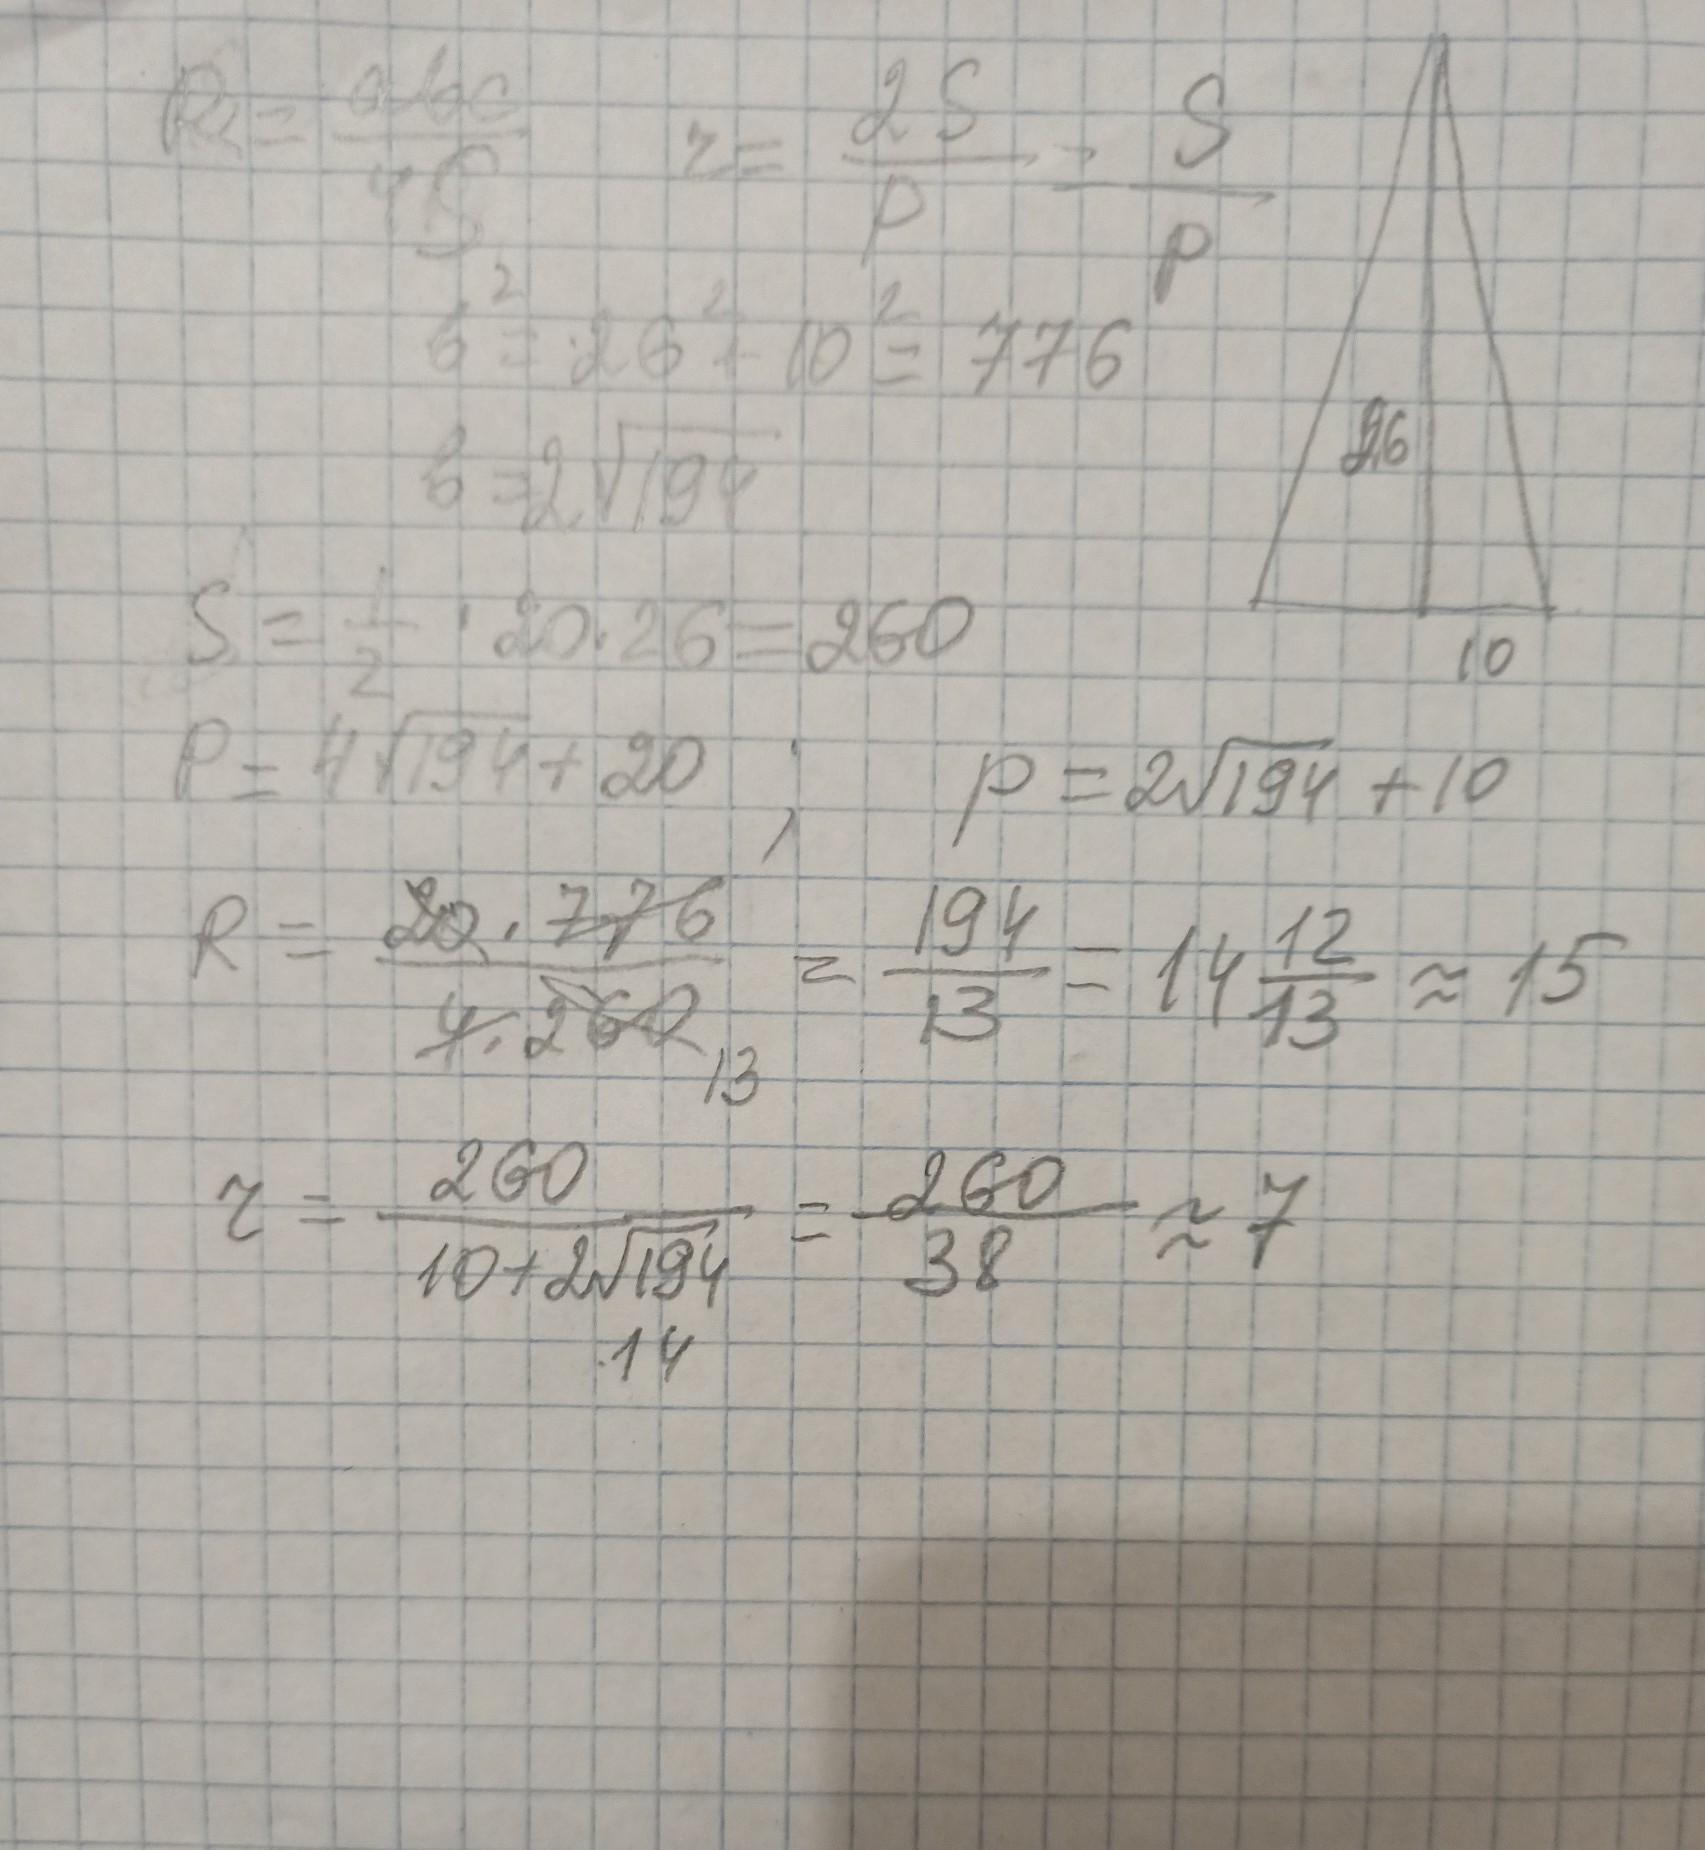 R = abc/4S   r = 2S/P = S/p
b² = 26² + 10² = 776
b = 2√194
26
S = 1/2 · 20 · 26 = 260
10
P = 4√194 + 20 ; p = 2√194 + 10
R = 20 · 776 / 4 · 260 = 194/13 = 14 12/13 ≈ 15
13
r = 260 / 10 + 2√194 = 260/38 ≈ 7
14